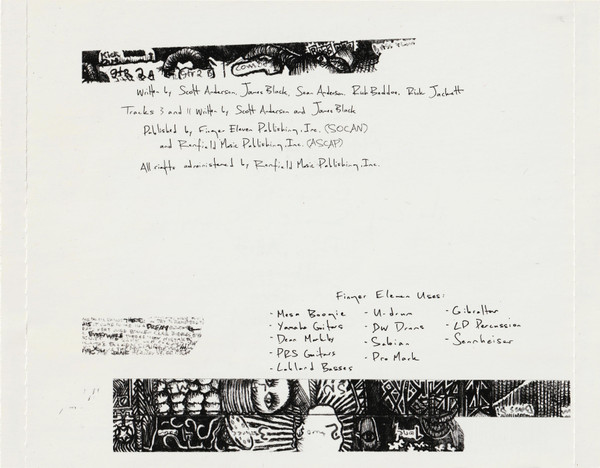 Kick
Gtr 2
Written by Scott Anderson, James Black, Sean Anderson, Rich Beddoe, Rick Jackett
Tracks 3 and 11 Written by Scott Anderson and James Black
Published by Finger Eleven Publishing, Inc. (SOCAN)
and Renfield Music Publishing, Inc. (ASCAP)
All rights administered by Renfield Music Publishing, Inc.
Finger Eleven Uses:
- Mesa Boogie
- Yamaha Guitars
- Dean Markley
- PRS Guitars
- Lakland Basses
- U-drum
- DW Drums
- Sabian
- Pro Mark
- Gibraltar
- LP Percussion
- Sennheiser